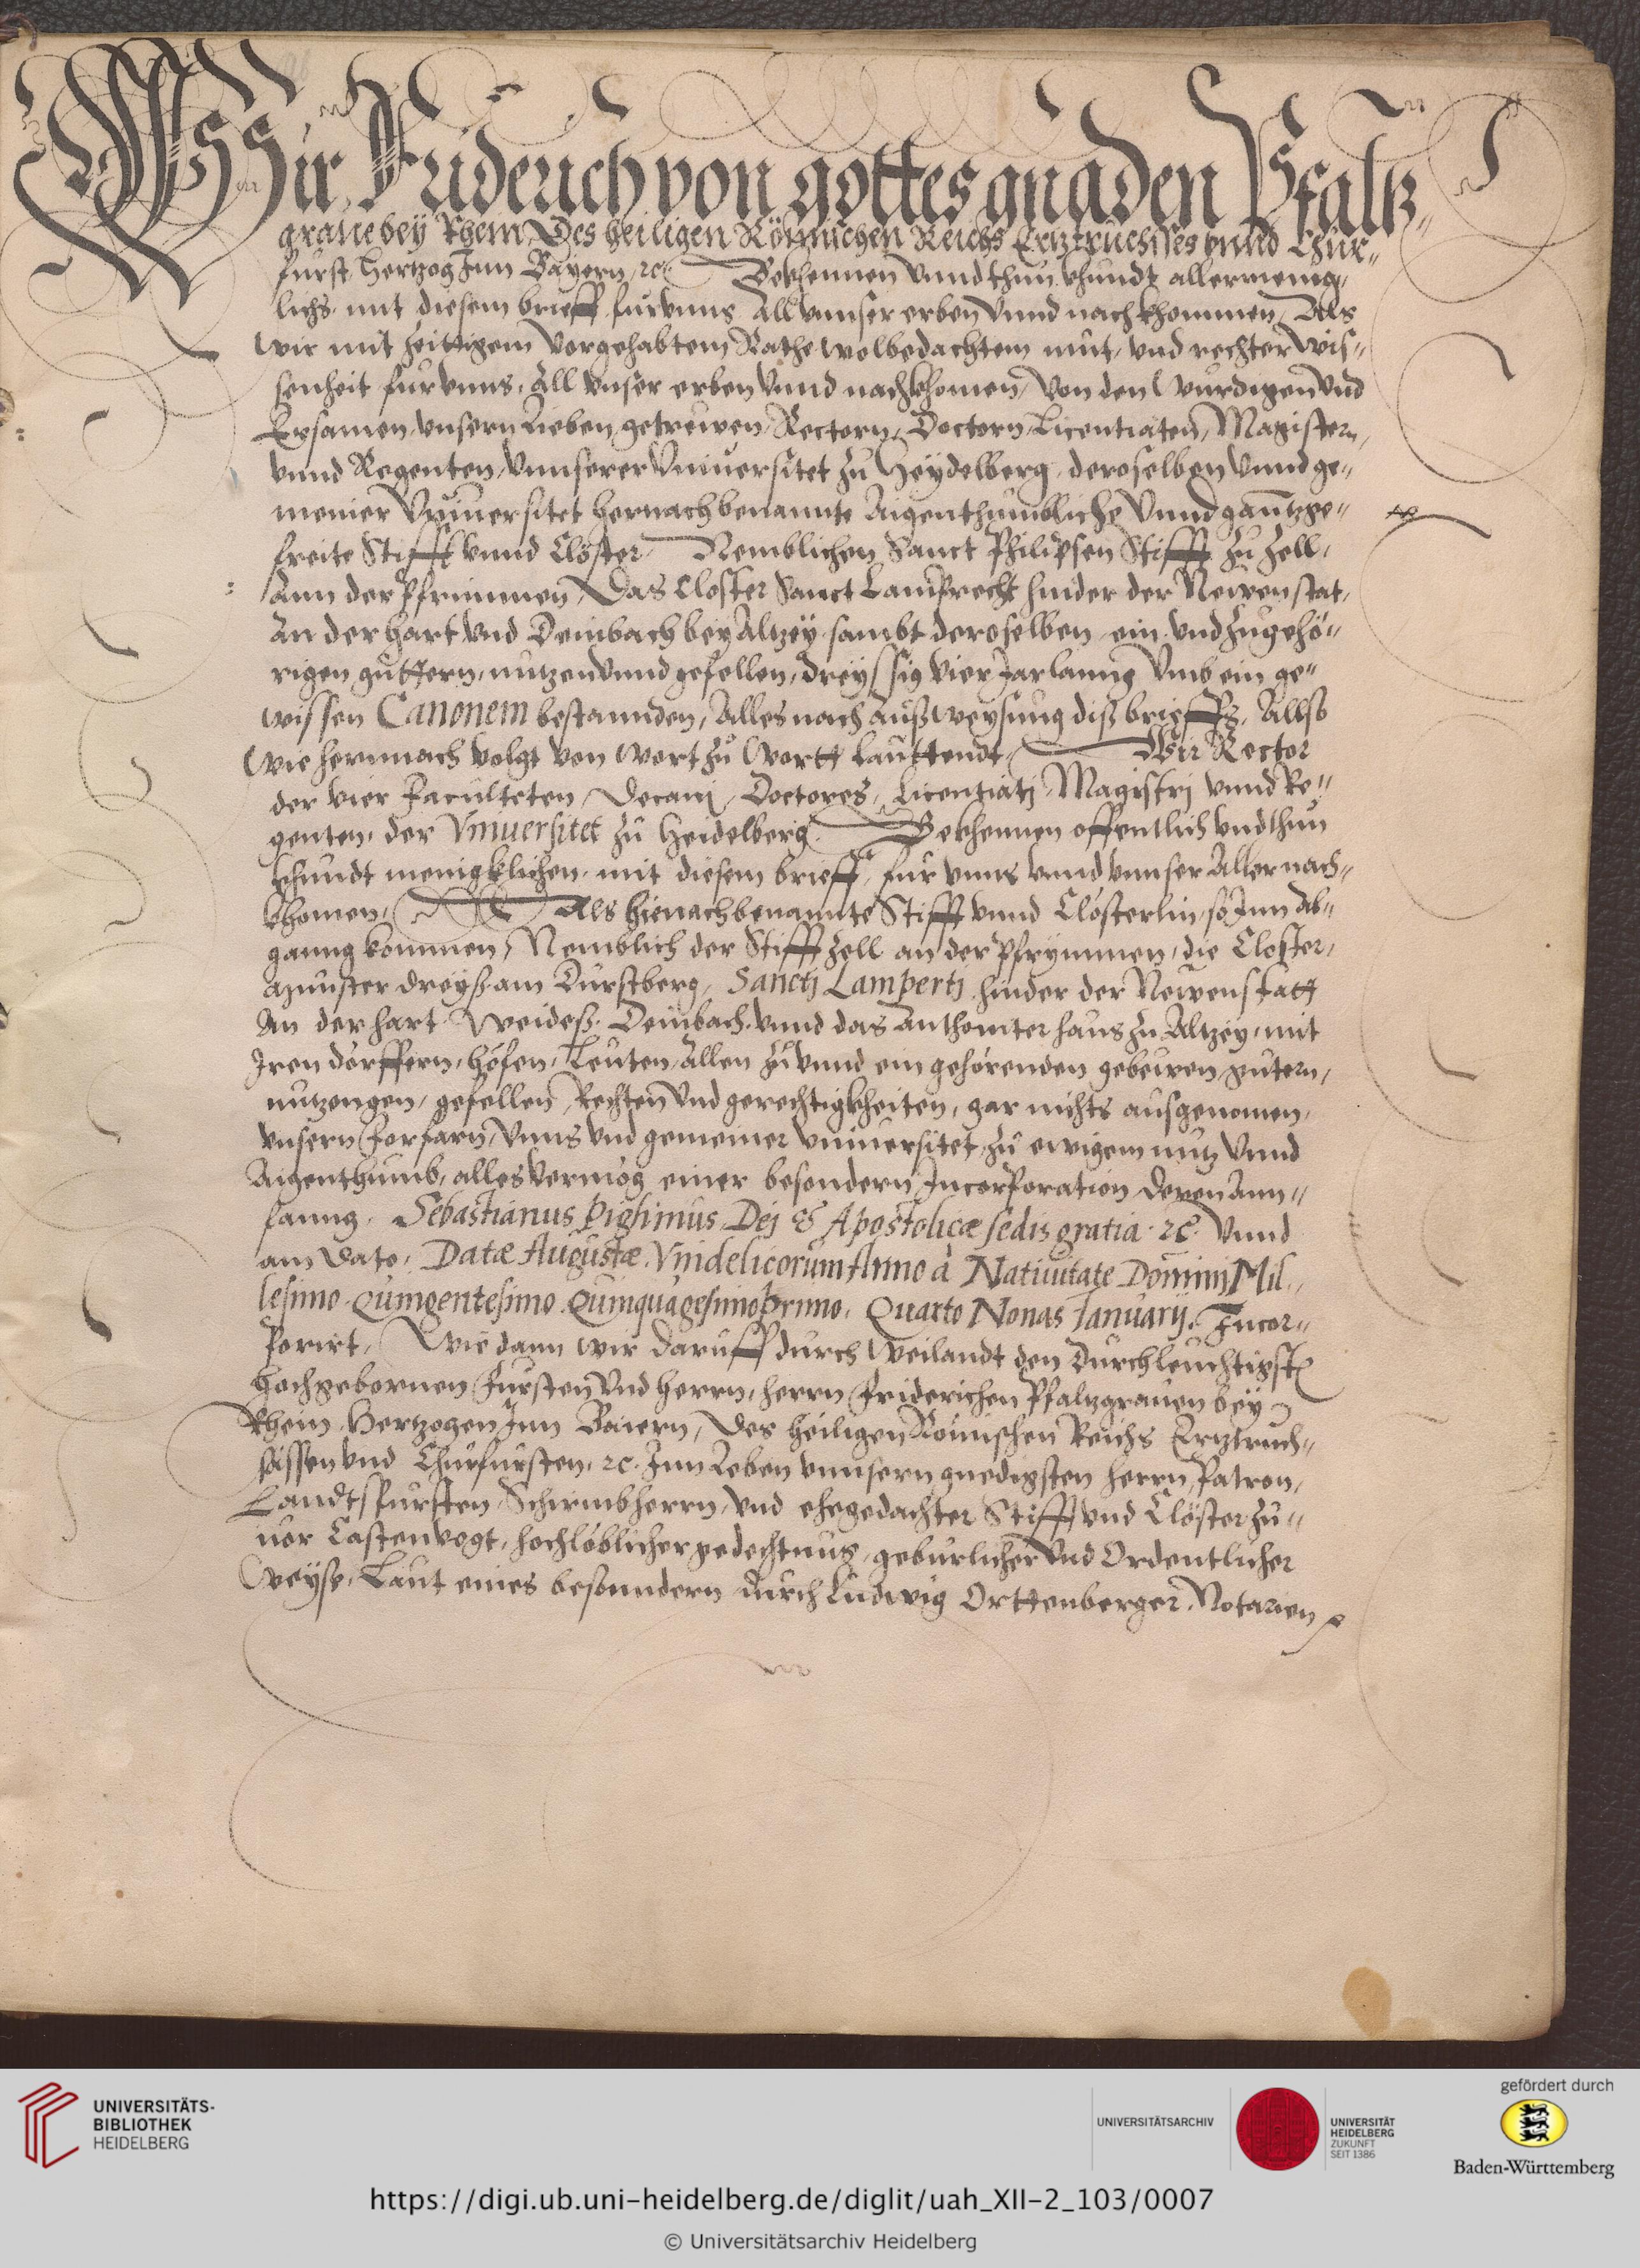 Wir Friderich von gottes gnaden Pfaltz„
graue bey Rhein Des heiligen Römischen Reichs Ertztruchses vnnd Chur„
furst Hertzog Inn Bayern, ⁊c. Bekhennen vnnd thun khundt allermenig„
lichs, mit diesem brieff fur vnns all vnnser erben vnnd nachkhommen, Als
wir mit zeittigem vorgehabtem Rathe wolbedachtem mut, vnd rechter wis„
senheit fur vnns, all vnser erben vnnd nachkhomen, von den wurdigen vnd
Ersamen vnsern lieben getrewen, Rectorn, Doctorn, Licentiaten, Magistern,
vnnd Regenten, vnnserer Vniuersitet zu Heydelberg, deroselben vnnd ge„
meiner Vniuersitet hernachbenannte Aigenthumbliche vnnd ganntz ge„
freite Stifft vnnd Clöster, Nemblichen Sanct Philipsen Stifft zu Zell,
Ann der Pfrimmen, Das Closter Sanct Lamprecht hinder der Newenstat,
an der Hart vnd Deinbach bey Altzey sambt deroselben ein vnd zugehö„
rigen guttern, nutzen vnnd gefellen, dreyssig vier Jar lanng vmb ein ge„
wissen Canonem bestannden, Alles nach außweysung diß brieffs, Allso
wie hernnach volgt von wort zu wortt lauttendt, Wir Rector
der vier Faculteten, Decani, Doctores, Licentiatj, Magistrj vnnd Re„
genten, der Vniuersitet zu Heidelberg. Bekhennen offentlich vnd thun
khundt menigklichen, mit diesem brieff, fur vnns vnnd vnnser aller nach„
khomen, Als hienachbenannte Stifft vnnd Clösterlin, so Inn Ab„
ganng kommen, Nemblich der Stifft Zell an der Pfrymmen, die Closter,
Munster dreyß am Durstberg, Sanctj Lampertj hinder der Newenstatt
an der hart Weideß, Deinbach vnnd das Anthoniter haus zu Altzey, mit
Iren dörffern, höfen, Leuten, allen zu vnnd ein gehörenden gebewen, gutern,
nutzongen, gefellen, Rechten vnd gerechtigkheiten, gar nichts ausgenomen,
vnsern forfarn, vnns vnd gemeiner vniuersitet, zu ewigem nutz vnnd
Aigenthumb, alles vermög einer besondern Incorporation, deren Ann„
fanng, Sebastianus Pighinus Dej & Apostolicæ sedis gratia ⁊c. vnnd
am dato, Datæ Augustæ Vindelicorum Anno à Natiuitate Dominj Mil„
lesimo Quingentesimo Quinquagesimoprimo, Quarto Nonas Januarij. Incor„
porirt, Wie dann wir daruff durch weilandt den Durchleuchtigst
Hochgebornen Fursten vnd herrn, herrn Friderichen Pfaltzgrauen bey
Rhein, Hertzogen Inn Baiern, des heiligen Römischen Reichs Ertztruch„
sässen vnd Churfursten, ⁊c. Inn Leben vnnsern gnedigsten herrn, Patron,
Landtsfursten, Schirmbherrn, vnd ehegedachter Stifft vnd Clöster zu„
uor Castenvogt, hochlöblicher gedechtnus, geburlicher vnd Ordentlicher
weyse, Laut eines besonndern durch Ludwig Orttenberger Notarien
UNIVERSITÄTS-
BIBLIOTHEK
HEIDELBERG
UNIVERSITÄTSARCHIV
UNIVERSITÄT
HEIDELBERG
ZUKUNFT
SEIT 1386
gefördert durch
Baden-Württemberg
https://digi.ub.uni-heidelberg.de/diglit/uah_XII-2_103/0007
© Universitätsarchiv Heidelberg